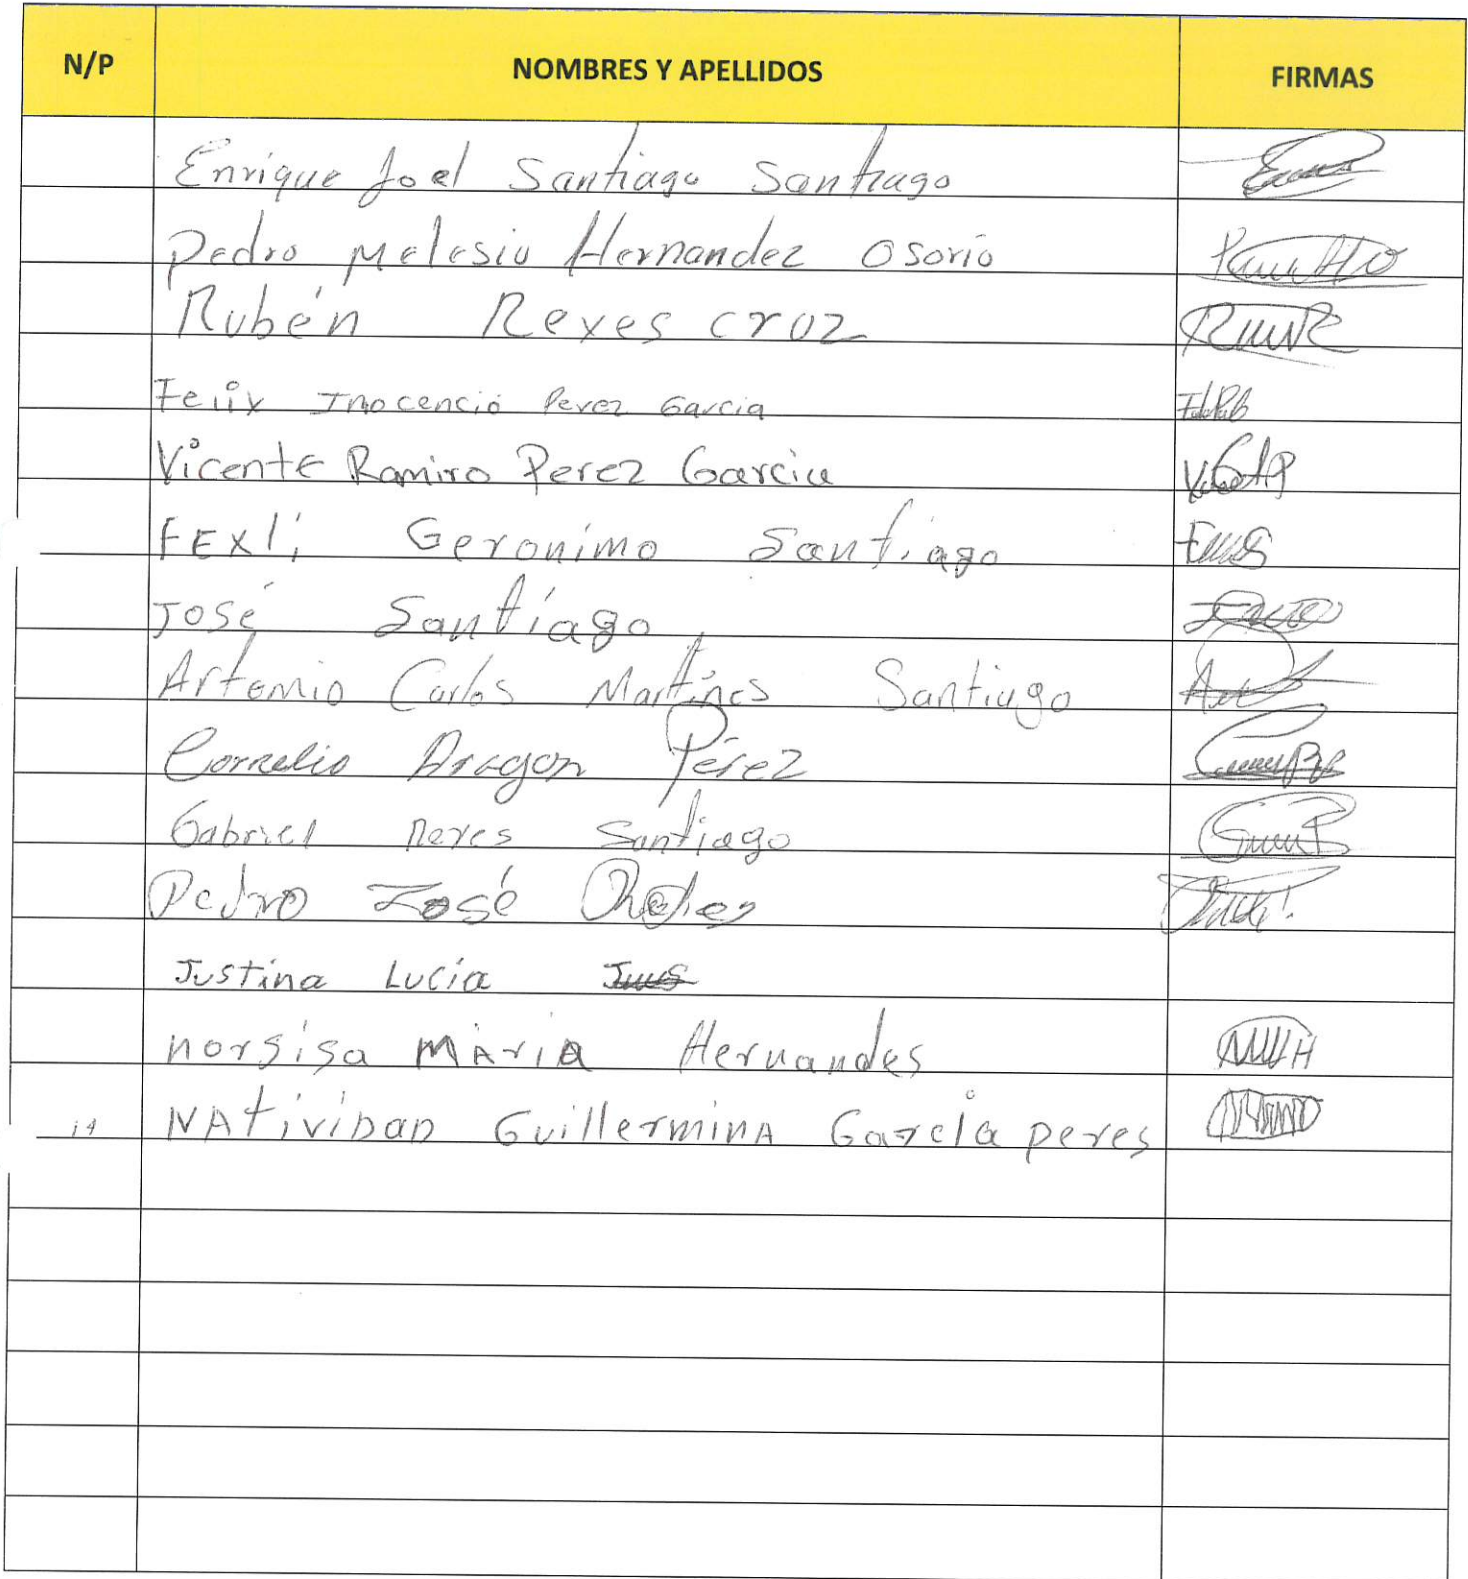 N/P NOMBRES Y APELLIDOS FIRMAS
Enrique Joel Santiago Santiago
Pedro Melesio Hernandez Osorio
Rubén Reyes cruz
Felix Inocencio Perez Garcia
Vicente Ramiro Perez Garcia
FExli Geronimo Santiago
José Santiago
Artemio Carlos Martines Santiago
Cornelio Aragon Pérez
Gabriel Reyes Santiago
Pedro José
Justina Lucía
norsisa MARIA Hernandes
14 NAtiviDAD GuillerminA García peres